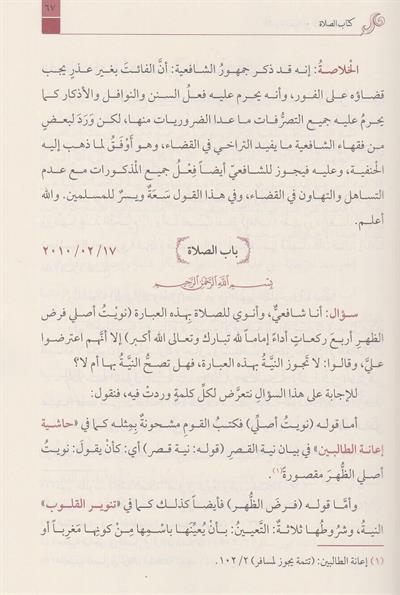 ٦٧
كتاب الصلاة
الخلاصةُ: إنه قد ذكر جمهورُ الشافعية: أنَّ الفائتَ بغير عذرٍ يجب
قضاؤه على الفور، وأنه يحرم عليه فعلُ السنن والنوافل والأذكار كما
يحرمُ عليه جميع التصرُّفات ما عدا الضروريات منها، لكن وَرَدَ لبعضٍ
من فقهاء الشافعية ما يفيد التراخي في القضاء، وهو أوْفَقُ لما ذهب إليه
الحنفية، وعليه فيجوز للشافعيّ أيضاً فِعْلُ جميع المذكورات مع عدم
التساهل والتهاون في القضاء، وفي هذا القول سَعَةٌ ويسرٌ للمسلمين. والله
أعلم.
باب الصلاة
٢٠١٠/٠٢/١٧
بِسْمِ اللَّهِ الرَّحْمَنِ الرَّحِيمِ
سؤال: أنا شافعيٌّ، وأنوي للصلاة بهذه العبارة (نويْتُ أصلي فرضَ
الظهرِ أربعَ ركعاتٍ أداءً إماماً لله تبارك وتعالى الله أكبر) إلا أنَّهم اعترضوا
عليَّ، وقالوا: لا تَجوز النيَّةُ بهذه العبارة، فهل تصحُّ النيَّةُ بها أم لا؟
للإجابة على هذا السؤالِ نتعرَّض لكلِّ كلمةٍ وردتْ فيه، فنقول:
أما قوله (نويتُ أصلِّي) فكتبُ القوم مشحونةٌ بِمثلِه كما في «حاشية
إعانة الطالبين» في بيان نية القصر (قوله: نية قصر) أي: كأنْ يقولَ: نويتُ
أصلي الظُّهرَ مقصورةً(١).
وأمَّا قوله (فرضَ الظُّهر) فأيضاً كذلك كما في «تنوير القلوب»
النيةُ، وشروطُها ثلاثةٌ: التَّعيينُ: بأنْ يُعيِّنَها باسْمِها مِنْ كونِها مَغرِباً أو
(١) إعانة الطالبين: (تتمة يجوز لمسافر) ١٠٢/٢.